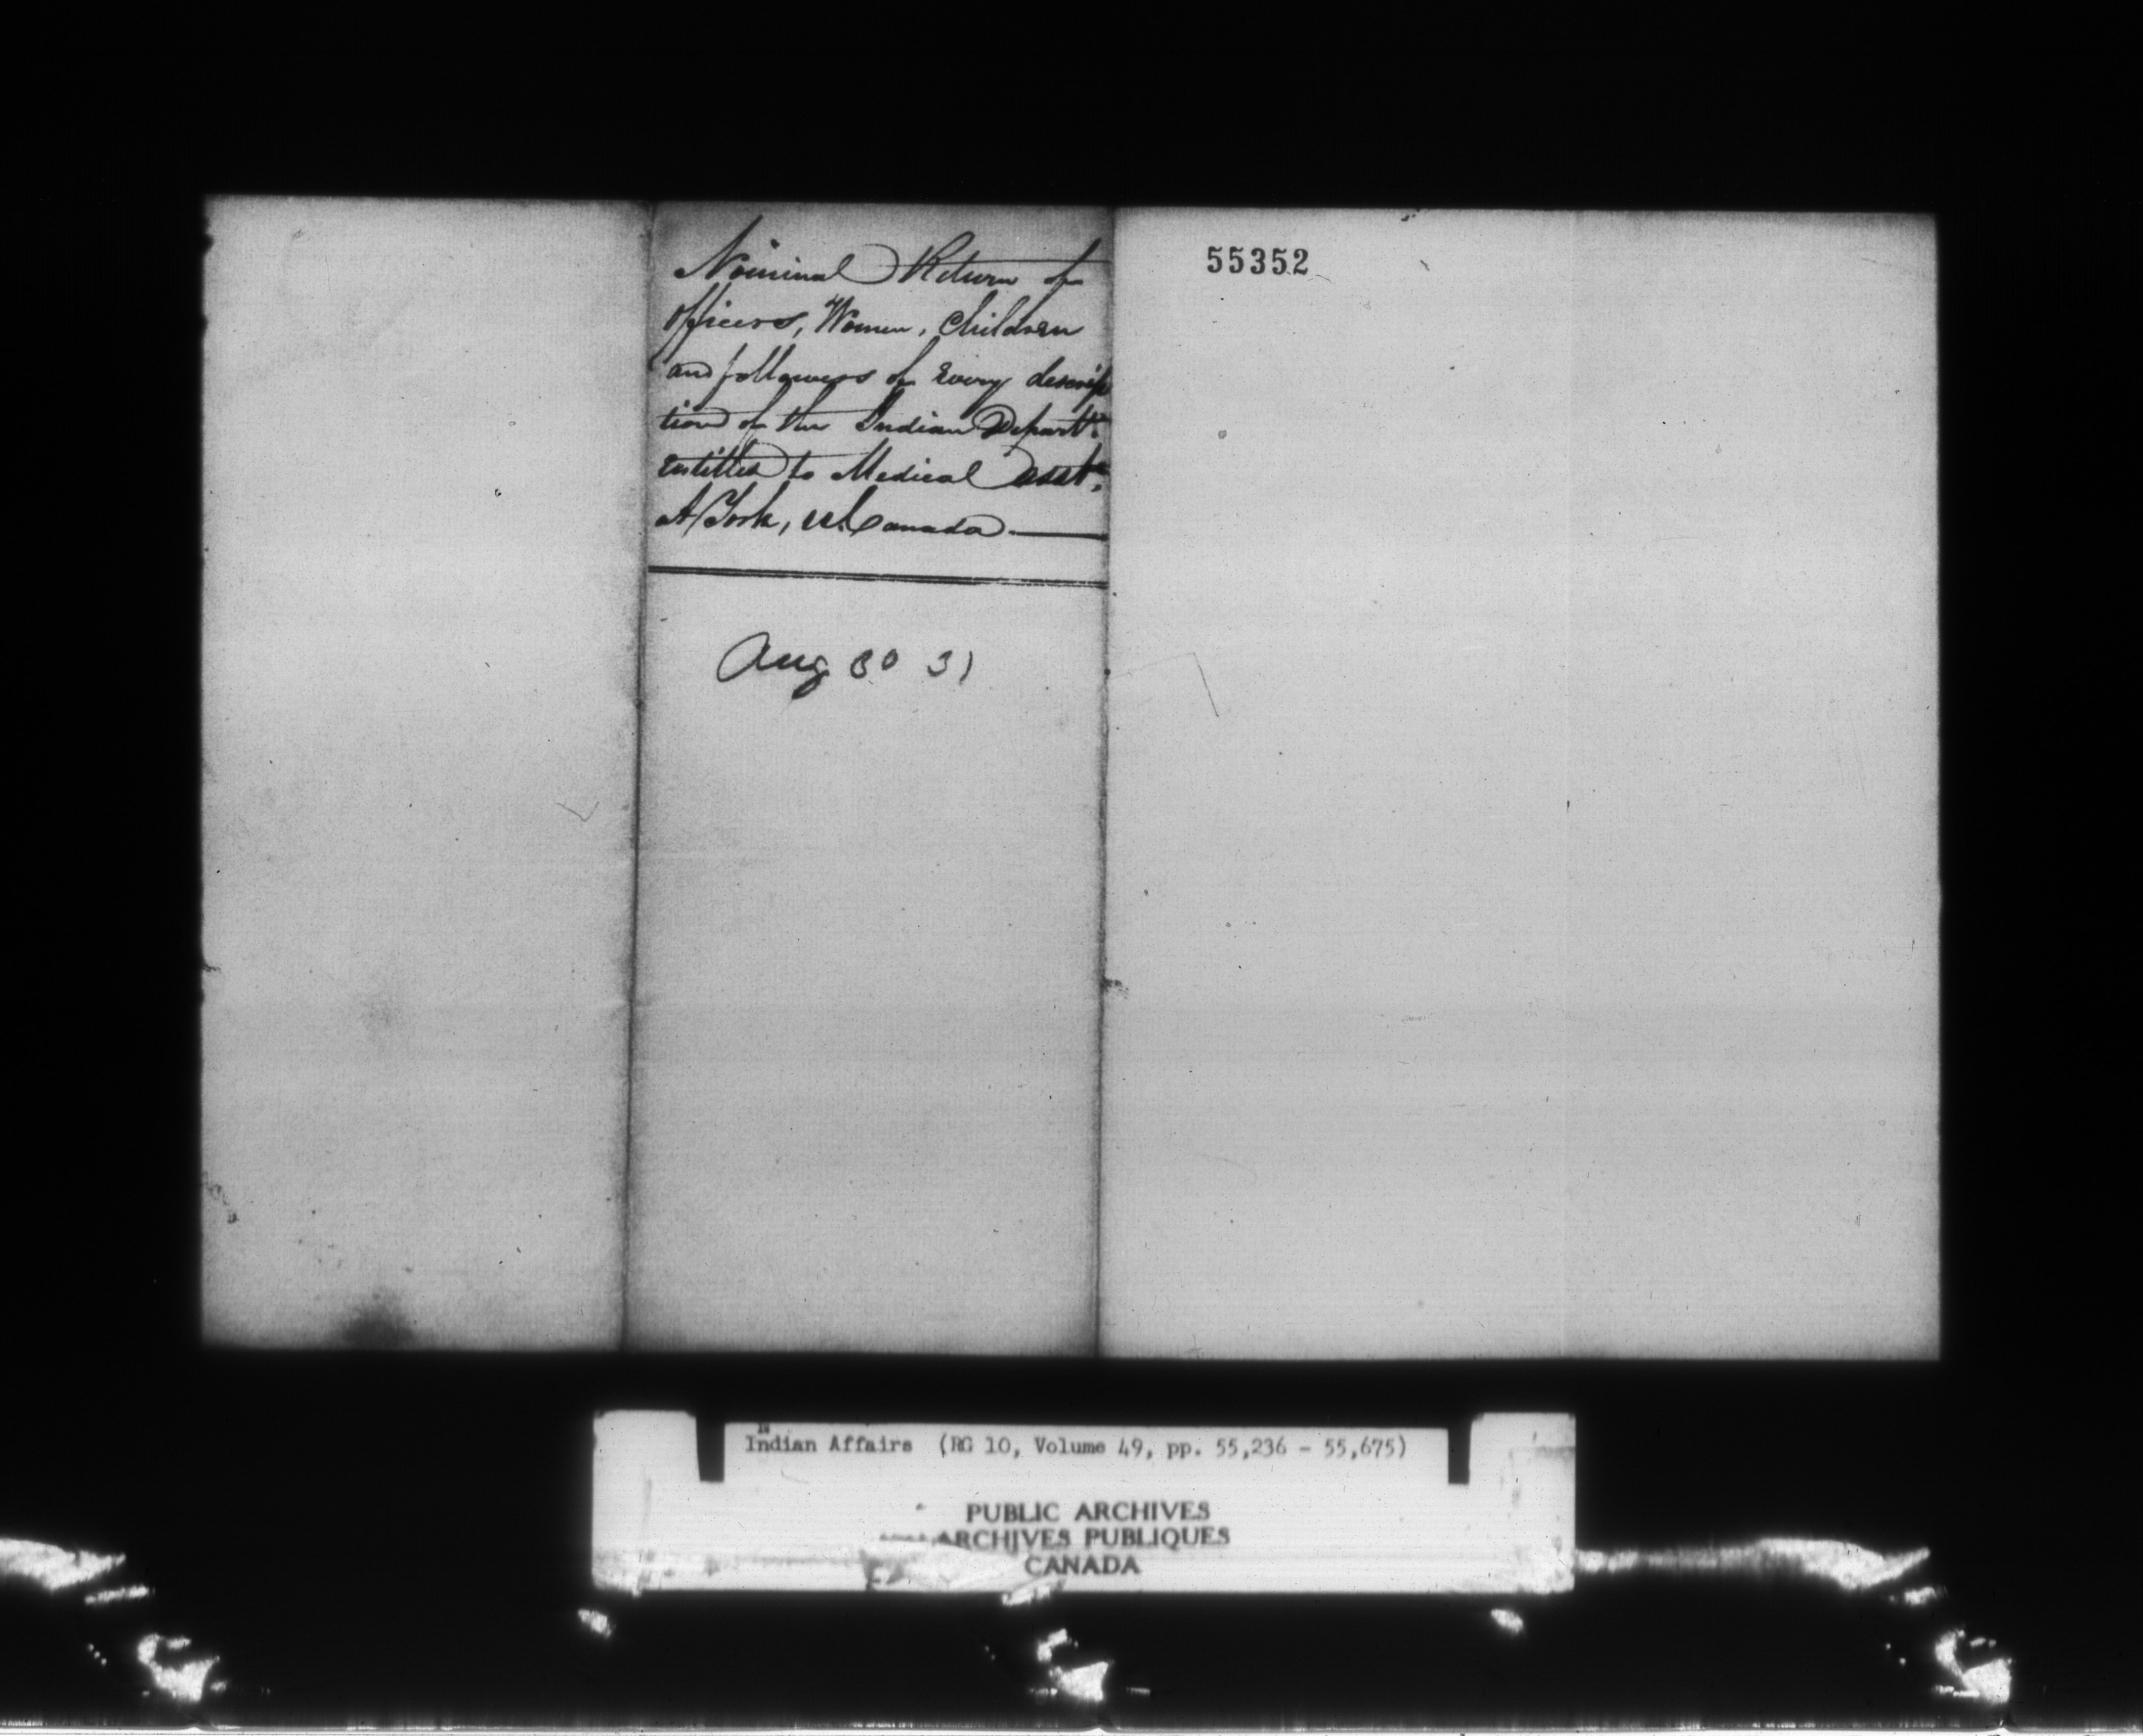 Nominal Return of
Officers, Women, Children
and followers of Every descrip
tion of the Indian Departt.
Entitled to Medical asste.
At York, U. Canada.
Aug 30 31
55352
Indian Affairs (RG 10, Volume 49, pp. 55,236 - 55,675)
PUBLIC ARCHIVES
ARCHIVES PUBLIQUES
CANADA